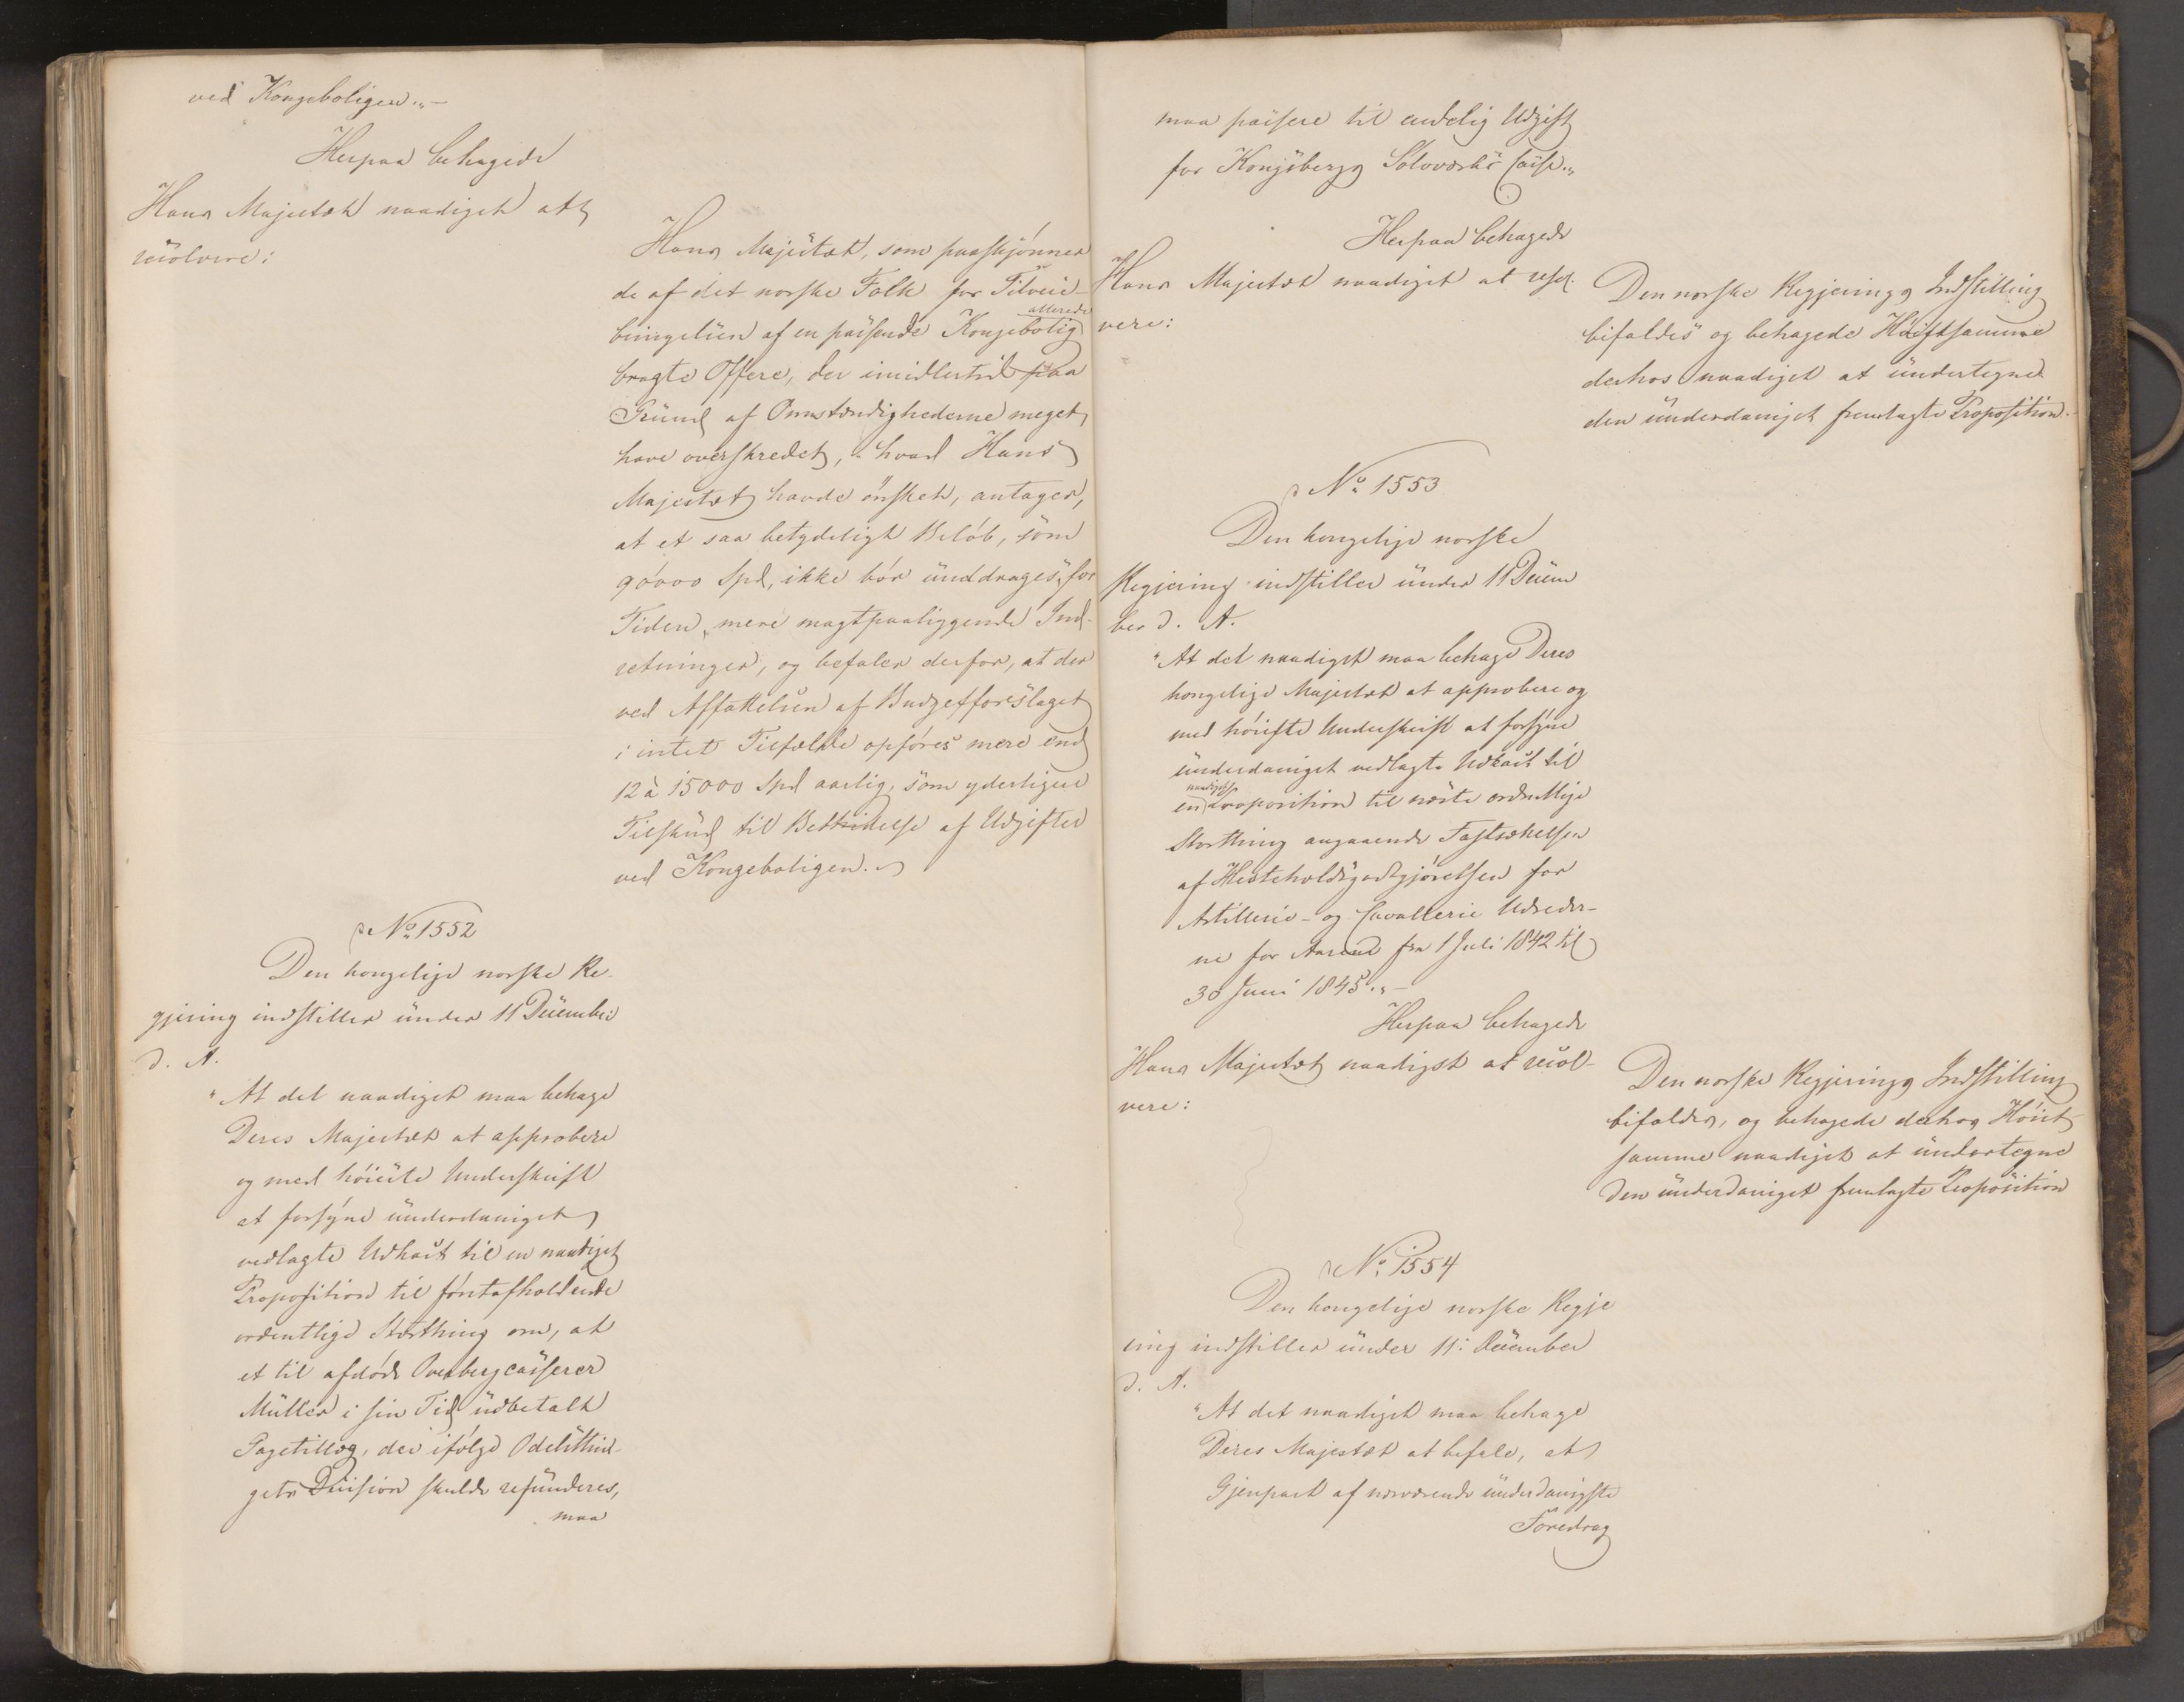 ved Kongeboligen."-
Herpaa behagede
Hans Majestæt naadigst at
resolvere:
Hans Majestæt, som paaskjønner
de af det norske Folk for Tilveie-
bringelsen af en passende Kongebolig allerede
bragte Offere, der imidlertid paa
Grund af Omstændighederne meget
have overskredet, hvad Hans
Majestæt havde ønsket, antager,
at et saa betydeligt Beløb, som
90000 Spd, ikke bør unddrages, for
Tiden, mere magtpaaliggende Ind-
retninger, og befaler derfor, at der
ved Affattelsen af Budgetforslaget
i intet Tilfælde opføres mere end
12 à 15000 Spd aarlig, som yderligere
Tilskud til Bestridelse af Udgifter
ved Kongeboligen.
No 1552
Den kongelige norske Re-
gjering indstiller under 11 December
d. A.
"At det naadigst maa behage
Deres Majestæt at approbere
og med høieste Underskrift
at forsyne underdanigst
vedlagte Udkast til en naadigst
Proposition til førstafholdende
ordentlige Storthing om, at
et til afdøde Overbergcasserer
Müller i sin Tid udbetalt
Gagetillæg, der ifølge Odelsthin-
gets Decision skulde refunderes,
maa
maa passere til endelig Udgift
for Kongsbergs Sølvværks Casse."
Herpaa behagede
Hans Majestæt naadigst at resol-
vere:
Den norske Regjerings Indstilling
bifaldes og behagede Høistsamme
derhos naadigst at undertegne
den underdanigst fremlagte Proposition.
No 1553
Den kongelige norske
Regjering indstiller under 11 Decem
ber d. A.
"At det naadigst maa behage Deres
kongelige Majestæt at approbere og
med høieste Underskrift at forsyne
underdanigst vedlagte Udkast til
en naadigst Proposition til næste ordentlige
Storthing angaaende Fastsættelsen
af Hesteholdsgodtgjørelsen for
Artillerie- og Cavallerie Udreder-
ne for Aarene fra 1 Juli 1842 til
30 Juni 1845."-
Herpaa behagede
Hans Majestæt naadigst at resol-
vere:
Den norske Regjerings Indstilling
bifaldes, og behagede derhos Høist-
samme naadigst at undertegne
den underdanigst fremlagte Proposition
No 1554
Den kongelige norske Regje
ring indstiller under 11: December
d. A.
"At det naadigst maa behage
Deres Majestæt at befale, at
Gjenpart af nærværende underdanigste
Foredrag